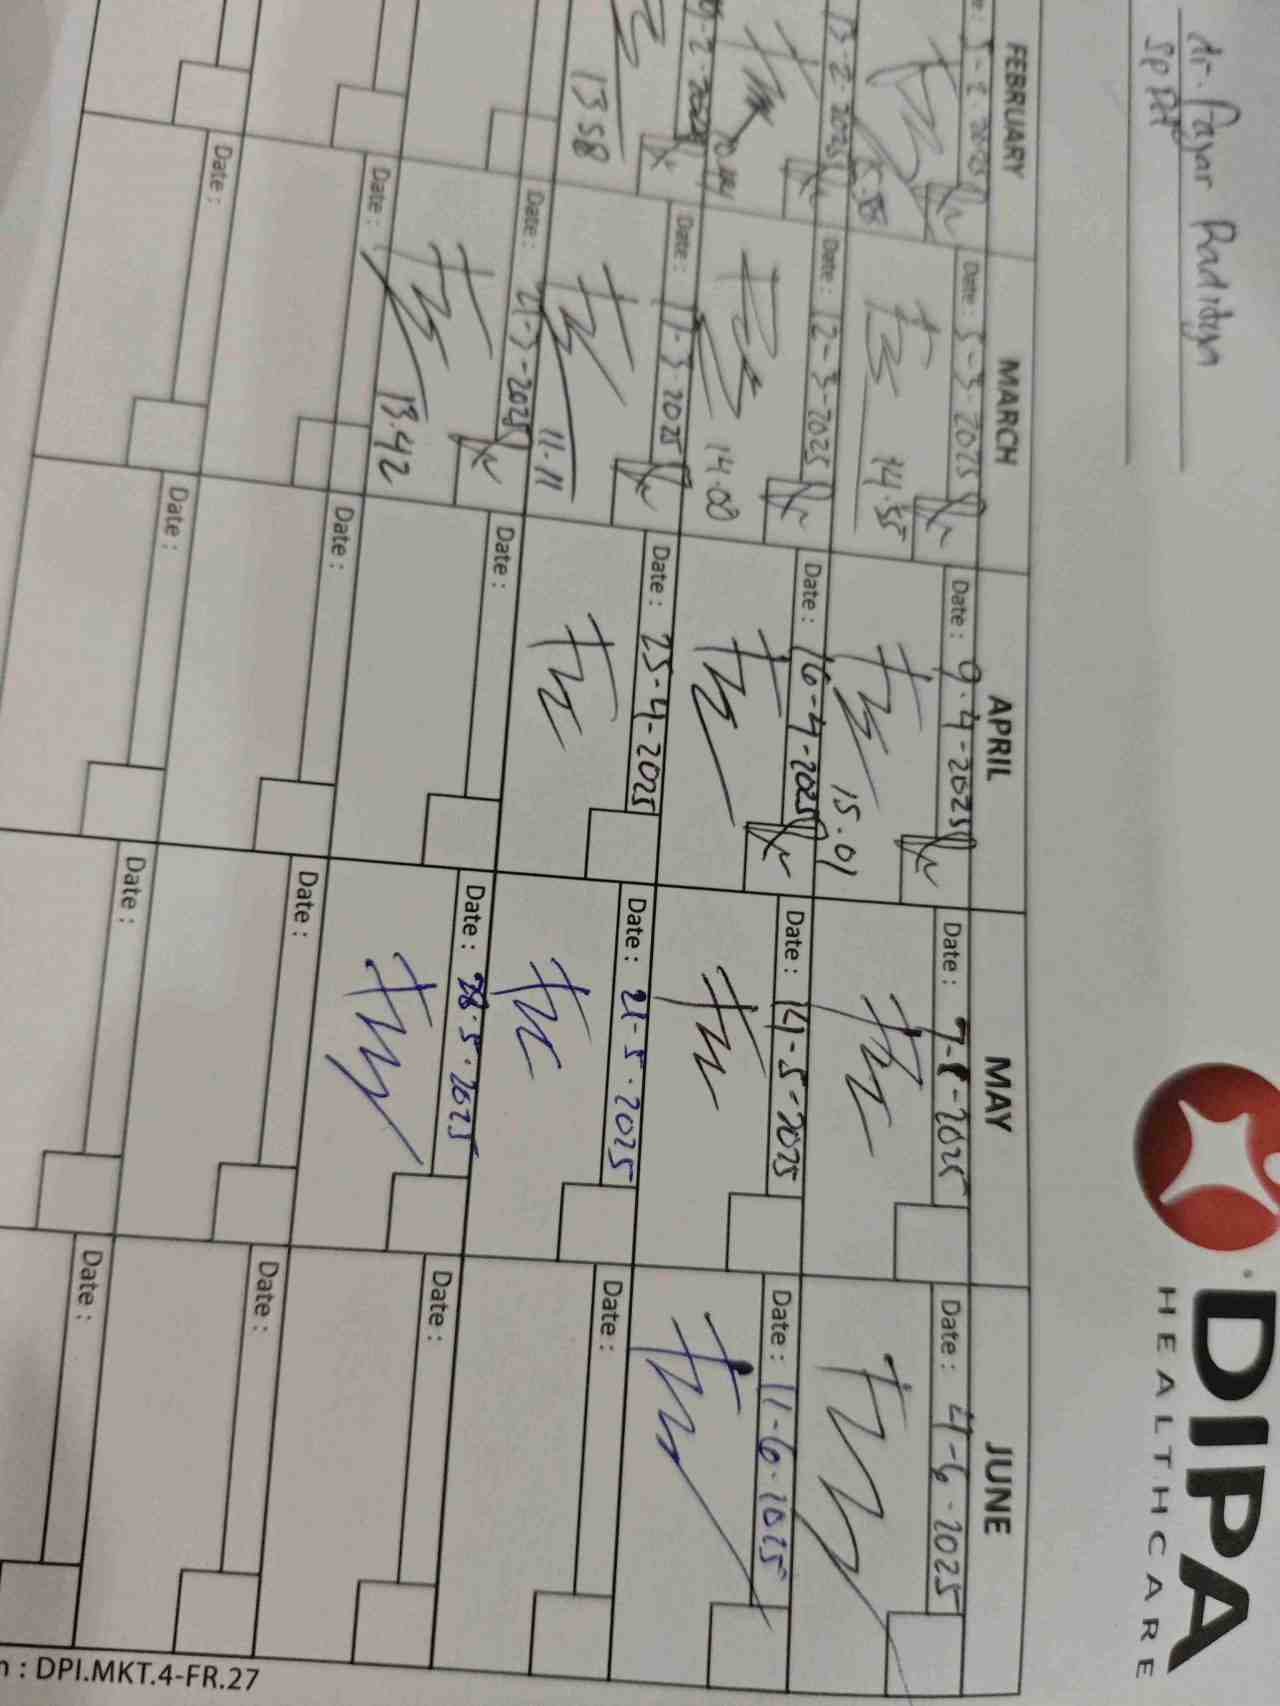 DIPA
HEALTHCARE
dr. Fajar Raditya
FEBRUARY
MARCH
APRIL
MAY
JUNE
5-2-2025
Date : 5-3-2025
Date : 9-4-2025
Date : 7-5-2025
Date : 4-6-2025
14.55
15.01
13-2-2025
Date : 12-3-2025
Date : 16-4-2025
Date : 14-5-2025
Date : 11-6-2025
14.00
2-2025
Date : 17-3-2025
Date : 25-4-2025
Date : 21-5-2025
Date :
13.58
11.11
Date : 21-3-2025
Date :
Date : 28-5-2025
Date :
13.42
Date :
Date :
Date :
Date :
Date :
Date :
Date :
Date :
: DPI.MKT.4-FR.27